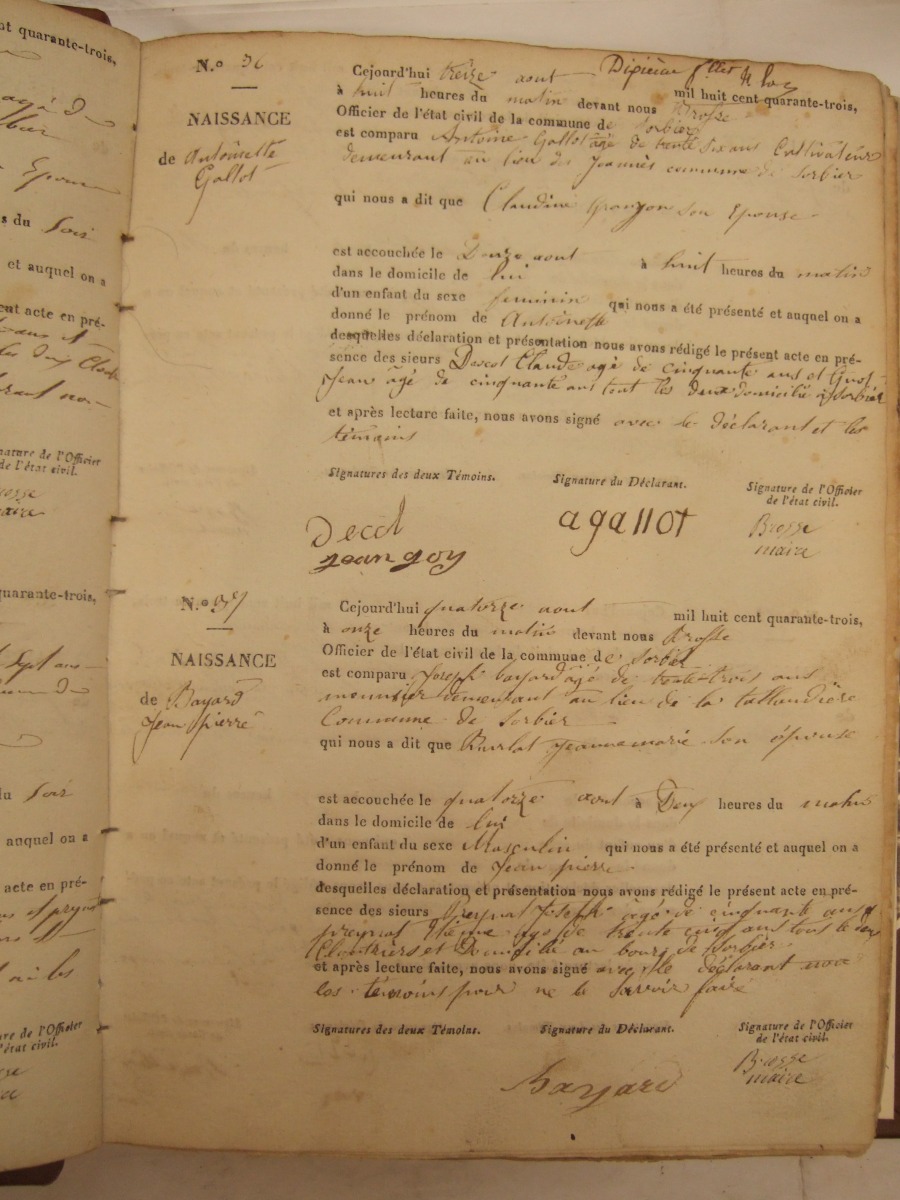 nt quarante-trois,
s du Soir
et auquel on a
ent acte en pré-
nature de l'Officier
de l'état civil.
uarante-trois,
Sept ans
du Soir
auquel on a
acte en pré-
ure de l'Officier
l'état civil.
Dixième fllet
N.o 36
NAISSANCE
de Antoinette
Gallot
Cejourd'hui treize aout mil huit cent quarante-trois,
à huit heures du matin devant nous Brosse
Officier de l'état civil de la commune de Sorbier
est comparu Antoine Gallot agé de trente six ans Cultivateur
demeurant au lieu des Jeannès commune de Sorbier
qui nous a dit que Claudine Grangon son Epouse
est accouchée le Douze aout à huit heures du matin
dans le domicile de lui
d'un enfant du sexe feminin qui nous a été présenté et auquel on a
donné le prénom de Antoinette
desquelles déclaration et présentation nous avons rédigé le présent acte en pré-
sence des sieurs Decot Claude agé de cinquante ans et
Jean âgé de cinquante ans tout les deux domicilié à Sorbier
et après lecture faite, nous avons signé avec le déclarant et les
témoins
Signatures des deux Témoins.
Signature du Déclarant.
Signature de l'Officier
de l'état civil.
Decot
jean goy
agallot
Brosse
maire
N.o 37
NAISSANCE
de Bayard
Jean pierre
Cejourd'hui quatorze aout mil huit cent quarante-trois,
à onze heures du matin devant nous Brosse
Officier de l'état civil de la commune de Sorbier
est comparu Joseph bayard âgé de trente-trois ans
meunsier demeurant au lieu de la tallaudière
Commune de Sorbier
qui nous a dit que Burlat Jeannemarie son épouse
est accouchée le quatorze aout à Deux heures du matin
dans le domicile de lui
d'un enfant du sexe Masculin qui nous a été présenté et auquel on a
donné le prénom de Jean pierre
desquelles déclaration et présentation nous avons rédigé le présent acte en pré-
sence des sieurs Preynat Joseph âgé de cinquante ans et
preynat Etienne age de trente cinq ans tous le deux
Cloutriers et Domicilié au bourg de Sorbier
et après lecture faite, nous avons signé avec le déclarant non
les témoins pour ne le savoir faire
Signatures des deux Témoins.
Signature du Déclarant.
Signature de l'Officier
de l'état civil.
Bayard
Brosse
maire